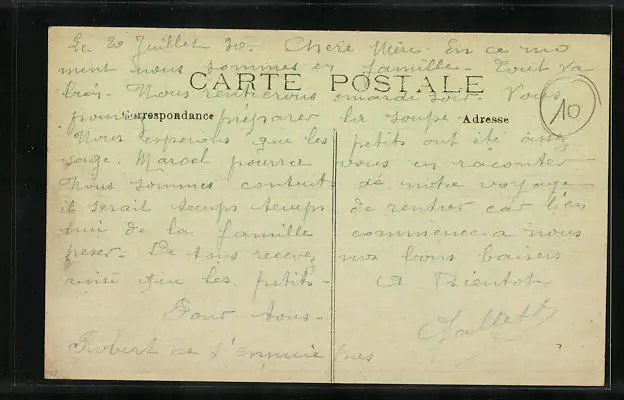 Le 20 Juillet 30. Chère Mère. En ce mo
ment nous sommes en famille. Tout va
bien. Nous rentrerons mardi soir. Vous
CARTE POSTALE
10
pourrez préparer la soupe.
Correspondance
Adresse
Nous esperions que les petits ont été assez
sage. Marcel pourra vous en raconter
Nous sommes contents de notre voyage
il serait temps temps de rentrer car l'en
nui de la famille commence a nous
peser. De tous recevez nos bons baisers
ainsi que les petits. A Bientot
Pour tous.
Robert ne s'ennuie pas